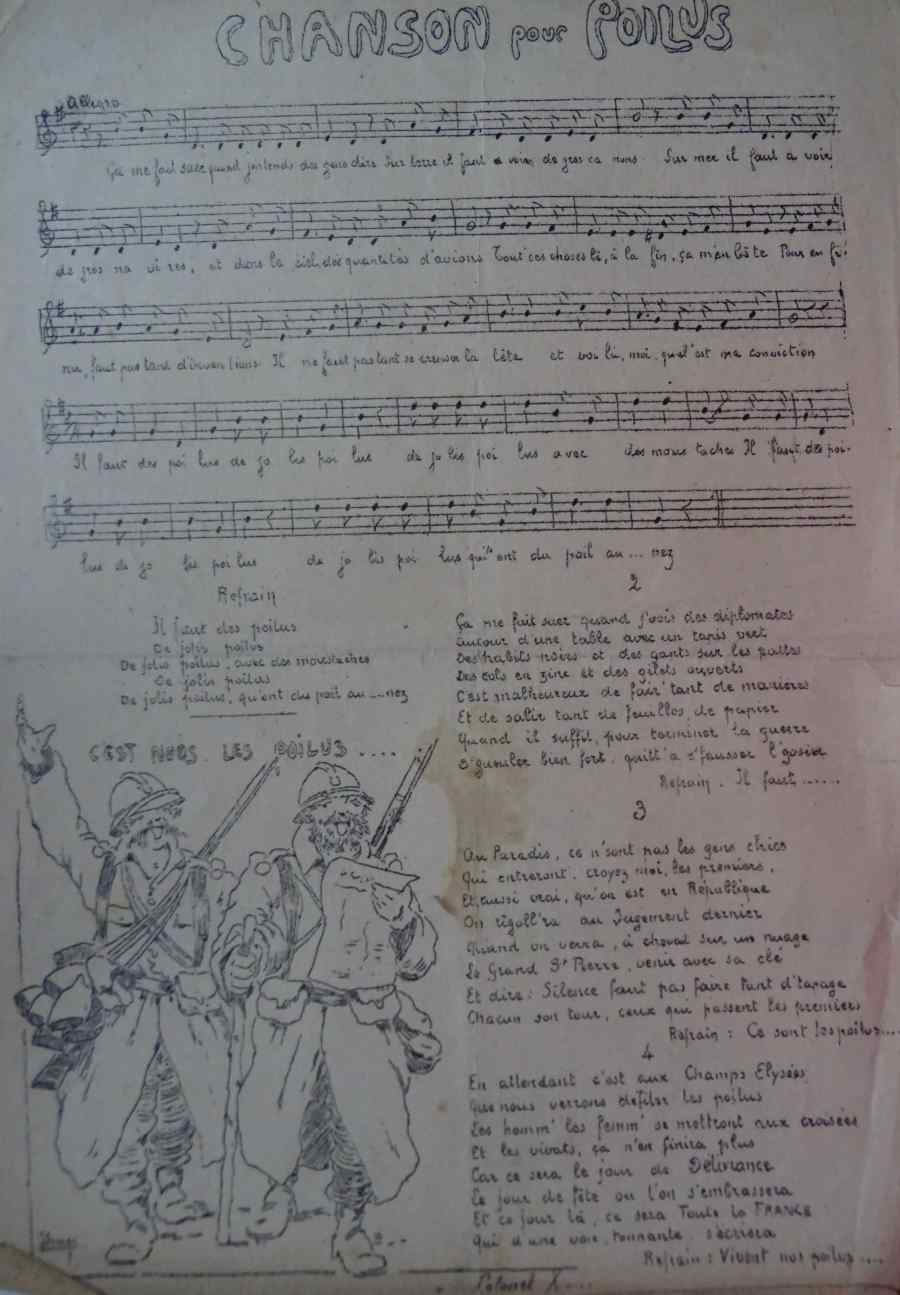 CHANSON pour POILUS
Allegro
Ça me fait suer quand j'entends des gens dire Sur terre il faut avoir de gros ca nons Sur mer il faut a voir
de gros na vi res, et dans le ciel, des quantités d'avions Tout' ces choses là, à la fin, ça m'em bête Pour en fi-
nir, faut pas tant d'inven tions Il ne faut pas tant se creuser la tête et voi là, moi, quel'est ma conviction
Il faut des poi lus de jo lis poi lus de jo lis poi lus avec des mous taches Il faut des poi-
lus de jo lis poi lus de jo lis poi lus qui ont du poil au ... nez
Refrain
Il faut des poilus
De jolis poilus
De jolis poilus, avec des moustaches
De jolis poilus
De jolis poilus, qu'ont du poil au ....nez
2
Ça me fait suer quand j'vois des diplomates
Autour d'une table avec un tapis vert
Des habits noirs et des gants sur les pattes
Des cols en zinc et des gilets ouverts
C'est malheureux de fair' tant de manières
Et de salir tant de feuilles de papier
Quand il suffit, pour terminer la guerre
D'gueuler bien fort, quitt' à s'fausser l'gosier
Refrain. Il faut ......
3
Au Paradis, ce n'sont pas les gens chics
Qui entreront, croyez moi, les premiers,
Et, aussi vrai, qu'on est en République
On rigoll'ra au Jugement dernier
Quand on verra, à cheval sur un nuage
Le Grand St Pierre, venir avec sa clé
Et dire : Silence faut pas faire tant d'tapage
Chacun son tour, ceux qui passent les premiers
Refrain : Ce sont les poilus....
4
En attendant c'est aux Champs Elysées
Que nous verrons défiler les poilus
Les homm' les femm' se mettront aux croisées
Et les vivats, ça n'en finira plus
Car ce sera le jour de Délivrance
Le jour de fête où l'on s'embrassera
Et ce jour là, ce sera Toute la FRANCE
Qui d'une voix tonnante s'écriera
Refrain : Vivent nos poilus ....
C'EST NOUS LES POILUS ....